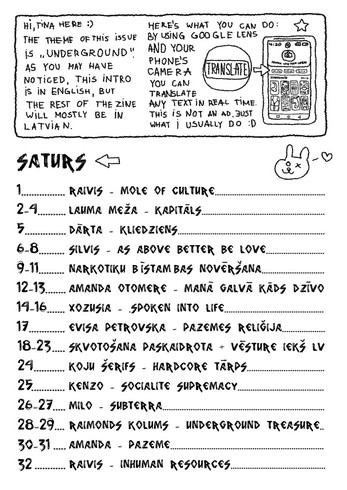 HI, TINA HERE :)
THE THEME OF THIS ISSUE
IS „UNDERGROUND”.
AS YOU MAY HAVE
NOTICED, THIS INTRO
IS IN ENGLISH, BUT
THE REST OF THE ZINE
WILL MOSTLY BE IN
LATVIAN.
HERE'S WHAT YOU CAN DO:
BY USING GOOGLE LENS
AND YOUR
PHONE'S
CAMERA
YOU CAN
TRANSLATE
ANY TEXT IN REAL TIME.
THIS IS NOT AN AD, JUST
WHAT I USUALLY DO :D
TRANSLATE
SATURS
1............ RAIVIS - MOLE OF CULTURE
2-4......... LAUMA MEŽA - KAPITĀLS
5............ DĀRTA - KLIEDZIENS
6-8......... SILVIS - AS ABOVE BETTER BE LOVE
9-11......... NARKOTIKU BĪSTAMBAS NOVĒRŠANA
12-13......... AMANDA OTOMERE - MANĀ GALVĀ KĀDS DZĪVO
14-16......... XOZUSIA - SPOKEN INTO LIFE
17............ EVISA PETROVSKA - PAZEMES RELIĢIJA
18-23......... SKVOTOŠANA PASKAIDROTA + VĒSTURE IEKŠ LV
24............ KOJU ŠERIFS - HARDCORE TĀRPS
25............ KENZO - SOCIALITE SUPREMACY
26-27......... MILO - SUBTERRA
28-29......... RAIMONDS KOLUMS - UNDERGROUND TREASURE..
30-31......... AMANDA - PAZEME
32............ RAIVIS - INHUMAN RESOURCES